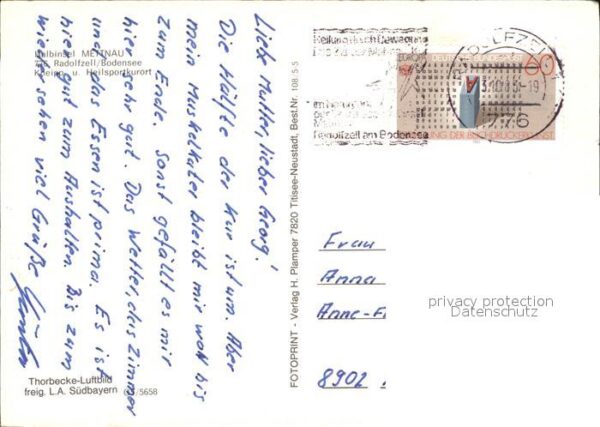 Halbinsel METTNAU
776 Radolfzell/Bodensee
Kneipp- u. Heilsportkurort
Liebe Mutter, lieber Georg!
Die Hälfte der Kur ist um. Aber
mein Muskelkater bleibt mir wohl bis
zum Ende. Sonst gefällt es mir
hier sehr gut. Das Wetter, das Zimmer
und das Essen ist prima. Es ist
hier gut zum Aushalten. Bis zum
wiedersehen viel Grüße
Thorbecke-Luftbild
freig. L.A. Südbayern
/5658
FOTOPRINT - Verlag H. Plamper 7820 Titisee-Neustadt, Best.Nr. 108/5-5
Heilung durch Bewegung
Radolfzell am Bodensee
EUROPA
60
RADOLFZELL
776
Frau
Anna
Anne-F
8902
privacy protection
Datenschutz